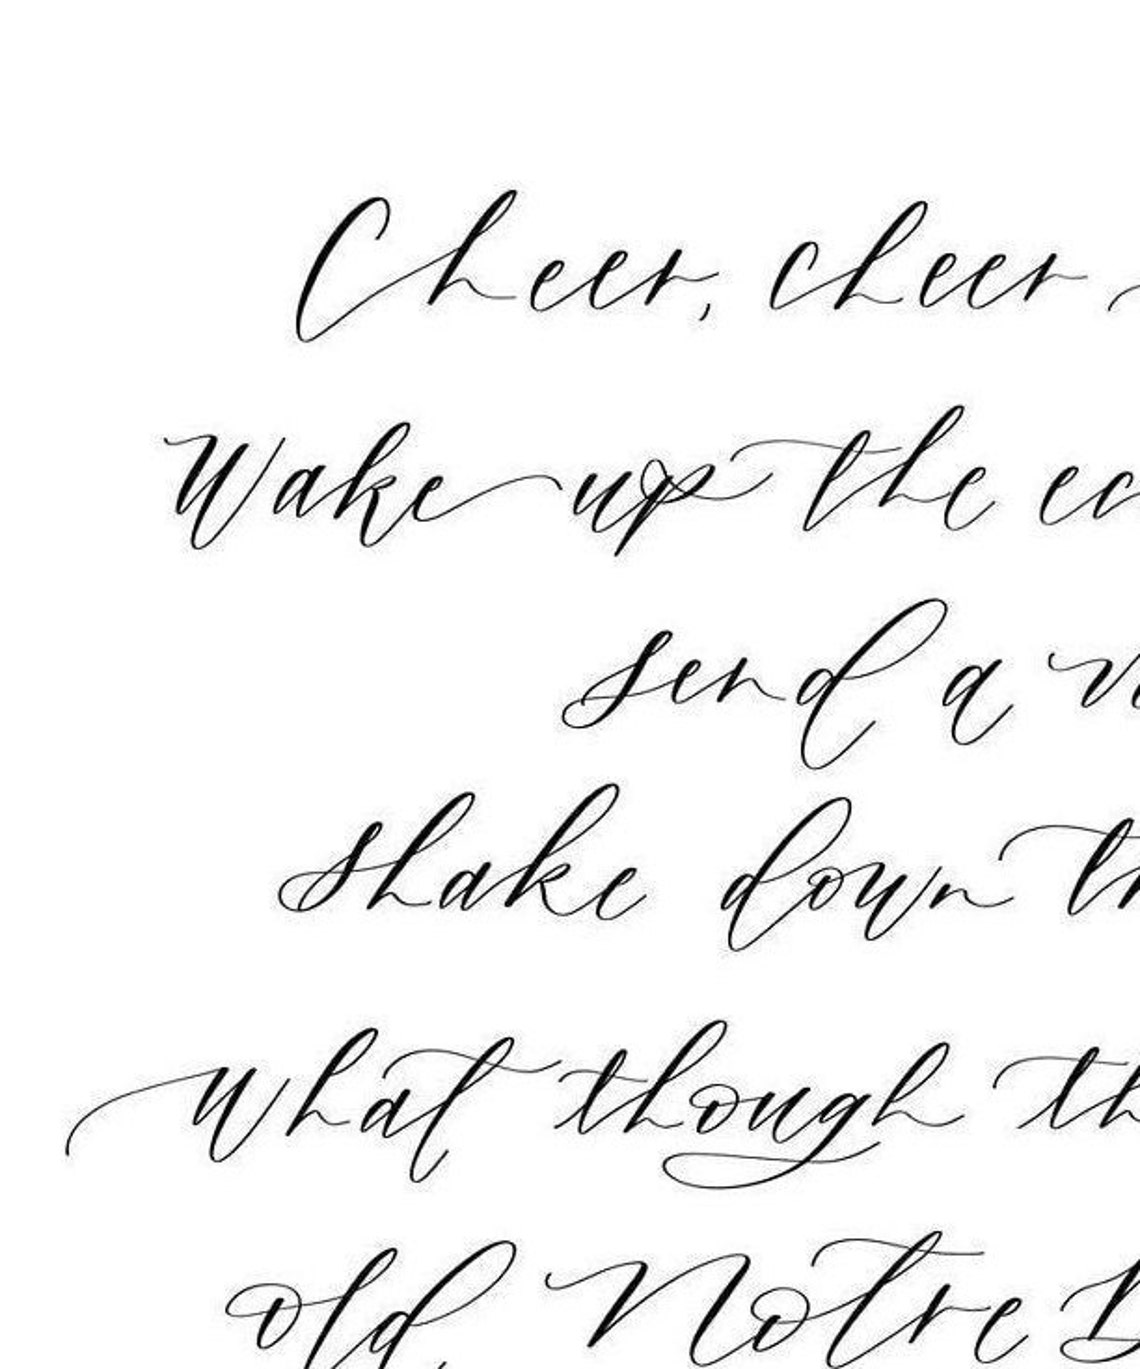 Cheer, cheer
Wake up the ec
send a
shake down th
what though th
old Notre D